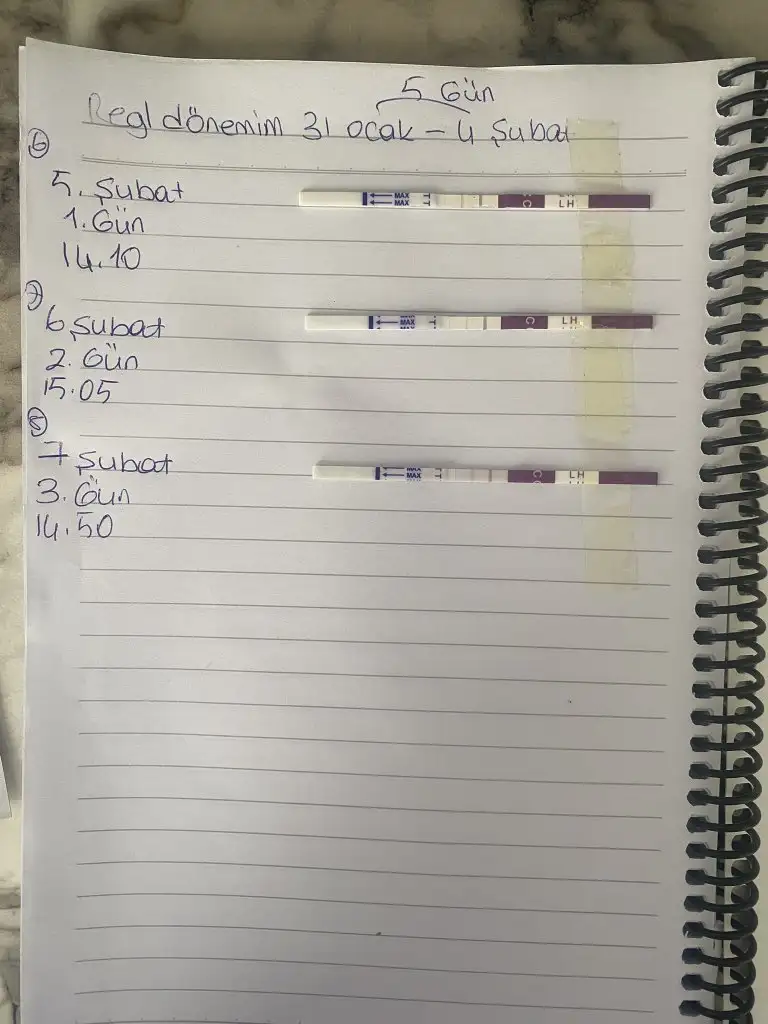 5 Gün
Regl dönemim 31 ocak - 4 Şubat
6
5. Şubat
1. Gün
14.10
MAX
MAX
T
T
C
C
LH
7
6 Şubat
2. Gün
15.05
MAX
T
C
LH
8
7 Şubat
3. Gün
14.50
MAX
MAX
T
C
LH